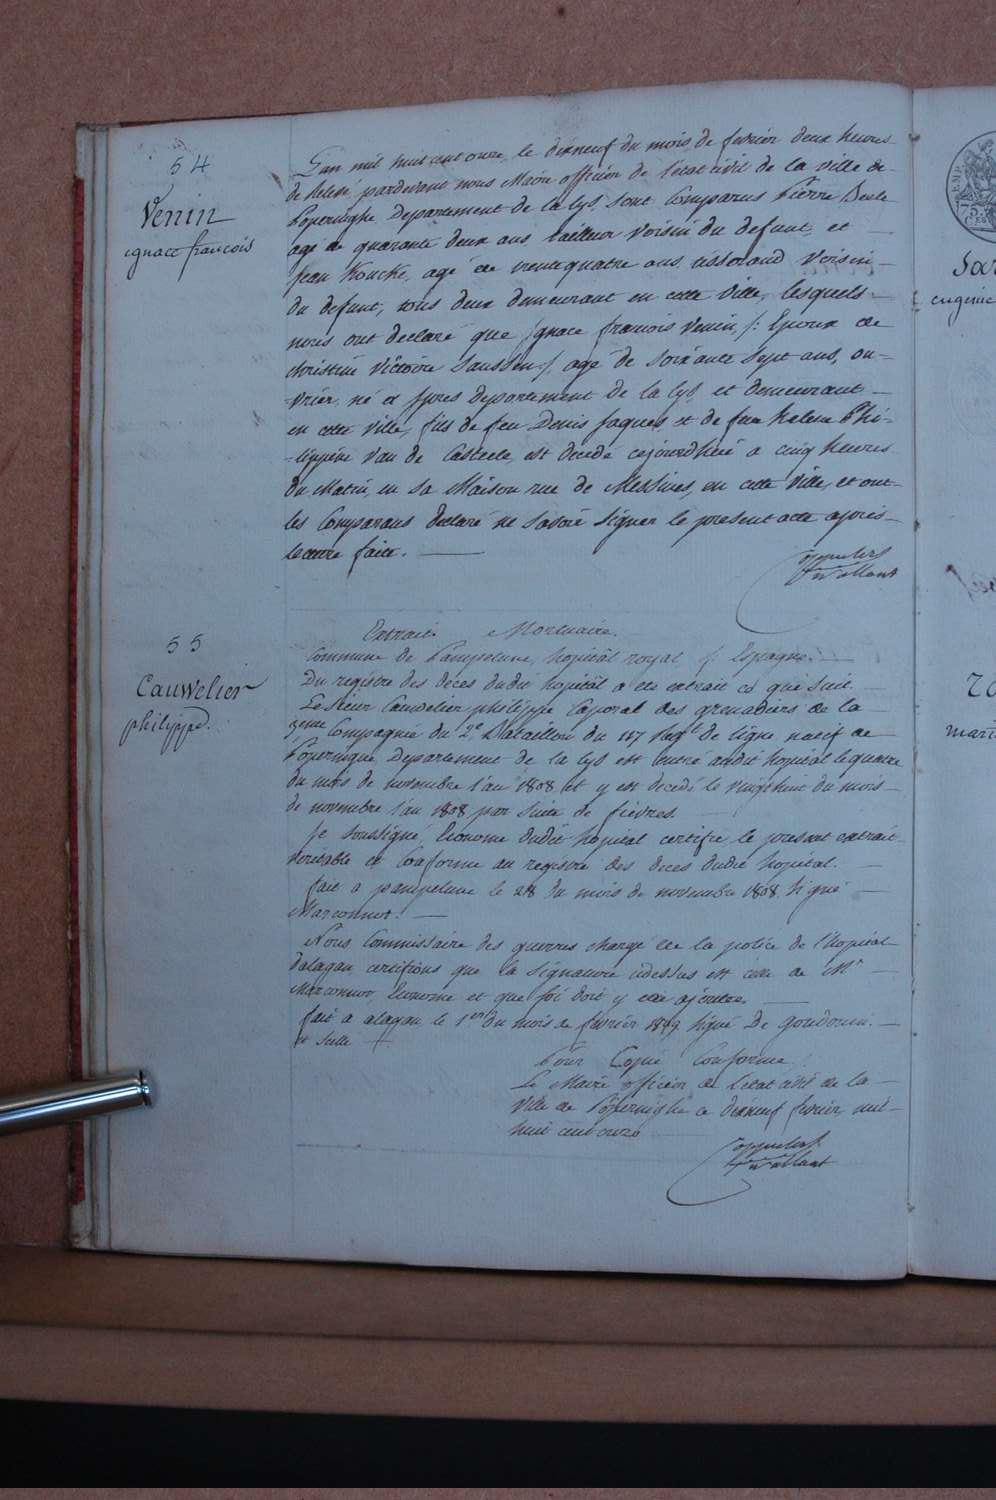 54
Venin
ignace francois
L'an mil huit cent onze, le dixneuf du mois de fevrier deux heures
de relevé, pardevant nous Maire officier de l'etat civil de la ville de
Poperinghe Departement de la Lys, sont Comparus Pierre
agé de quarante deux ans, tailleur voisin du defunt, et
jean Koucke, agé de trentequatre ans, tisserand voisin
du defunt, tous deux demeurant en cette ville, lesquels
nous ont declaré que ignace francois Venin, /: Epoux de
christine victoire Sanssen :/ agé de soixante sept ans, ou-
-vrier, né a ypres departement de la Lys, et demeurant
en cette ville, fils de feu Denis jaques et de feue helene Phi-
-lippine van de Casteele, est decedé cejourdhui a cinq heures
du Matin, en sa Maison rue de Messines, en cette ville, et ont
les Comparans declaré ne savoir signer le present acte après
lecture faite.
55
Cauwelier
philippe.
Extrait Mortuaire.
Commune de Pampelune, hopital royal /: Espagne.
Du registre des deces dudit hopital a ete extrait ce que suit.
Le sieur Cauwelier philippe Caporal des grenadiers de la
5eme Compagnie du 2e Bataillon du 117 Regt de ligne natif de
Poperingue, Departement de la Lys est entré audit hopital le quatre
du mois de novembre l'an 1808 et y est decedé le vingthuit du mois
de novembre l'an 1808 par suite de fievres.
Je soussigné, Econome dudit hopital certifie le present extrait
veritable et Conforme au registre des deces dudit hopital.
fait a pampelune le 28 du mois de novembre 1808. signé
Marconnot.
Nous Commissaire des guerres chargé de la police de l'hopital
d'alagan, certifions que la signature cidessus est celle de Mr
Marconnot, Econome et que foi doit y etre ajoutee.
fait a alagan, le 1er du mois de fevrier 1809. signé De
et scellé
Pour Copie Conforme
Le Maire officier de l'etat civil de la
ville de Poperinghe ce dixneuf fevrier mil
huit cent onze